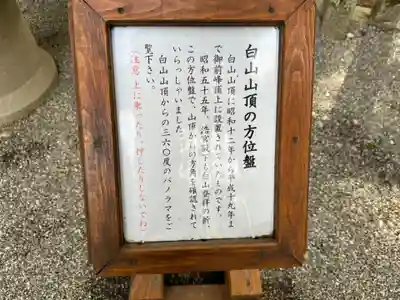 白山山頂の方位盤
白山山頂に昭和十二年から平成十九年ま
で御前峰頂上に設置されていたものです。
昭和五十五年、浩宮殿下も白山登拝の折、
この方位盤で、山頂からの方角を確認されて
いらっしゃいました。
白山山頂からの三六〇度のパノラマをご
覧下さい。
(注意 上に乗ったり、押したりしないでね)